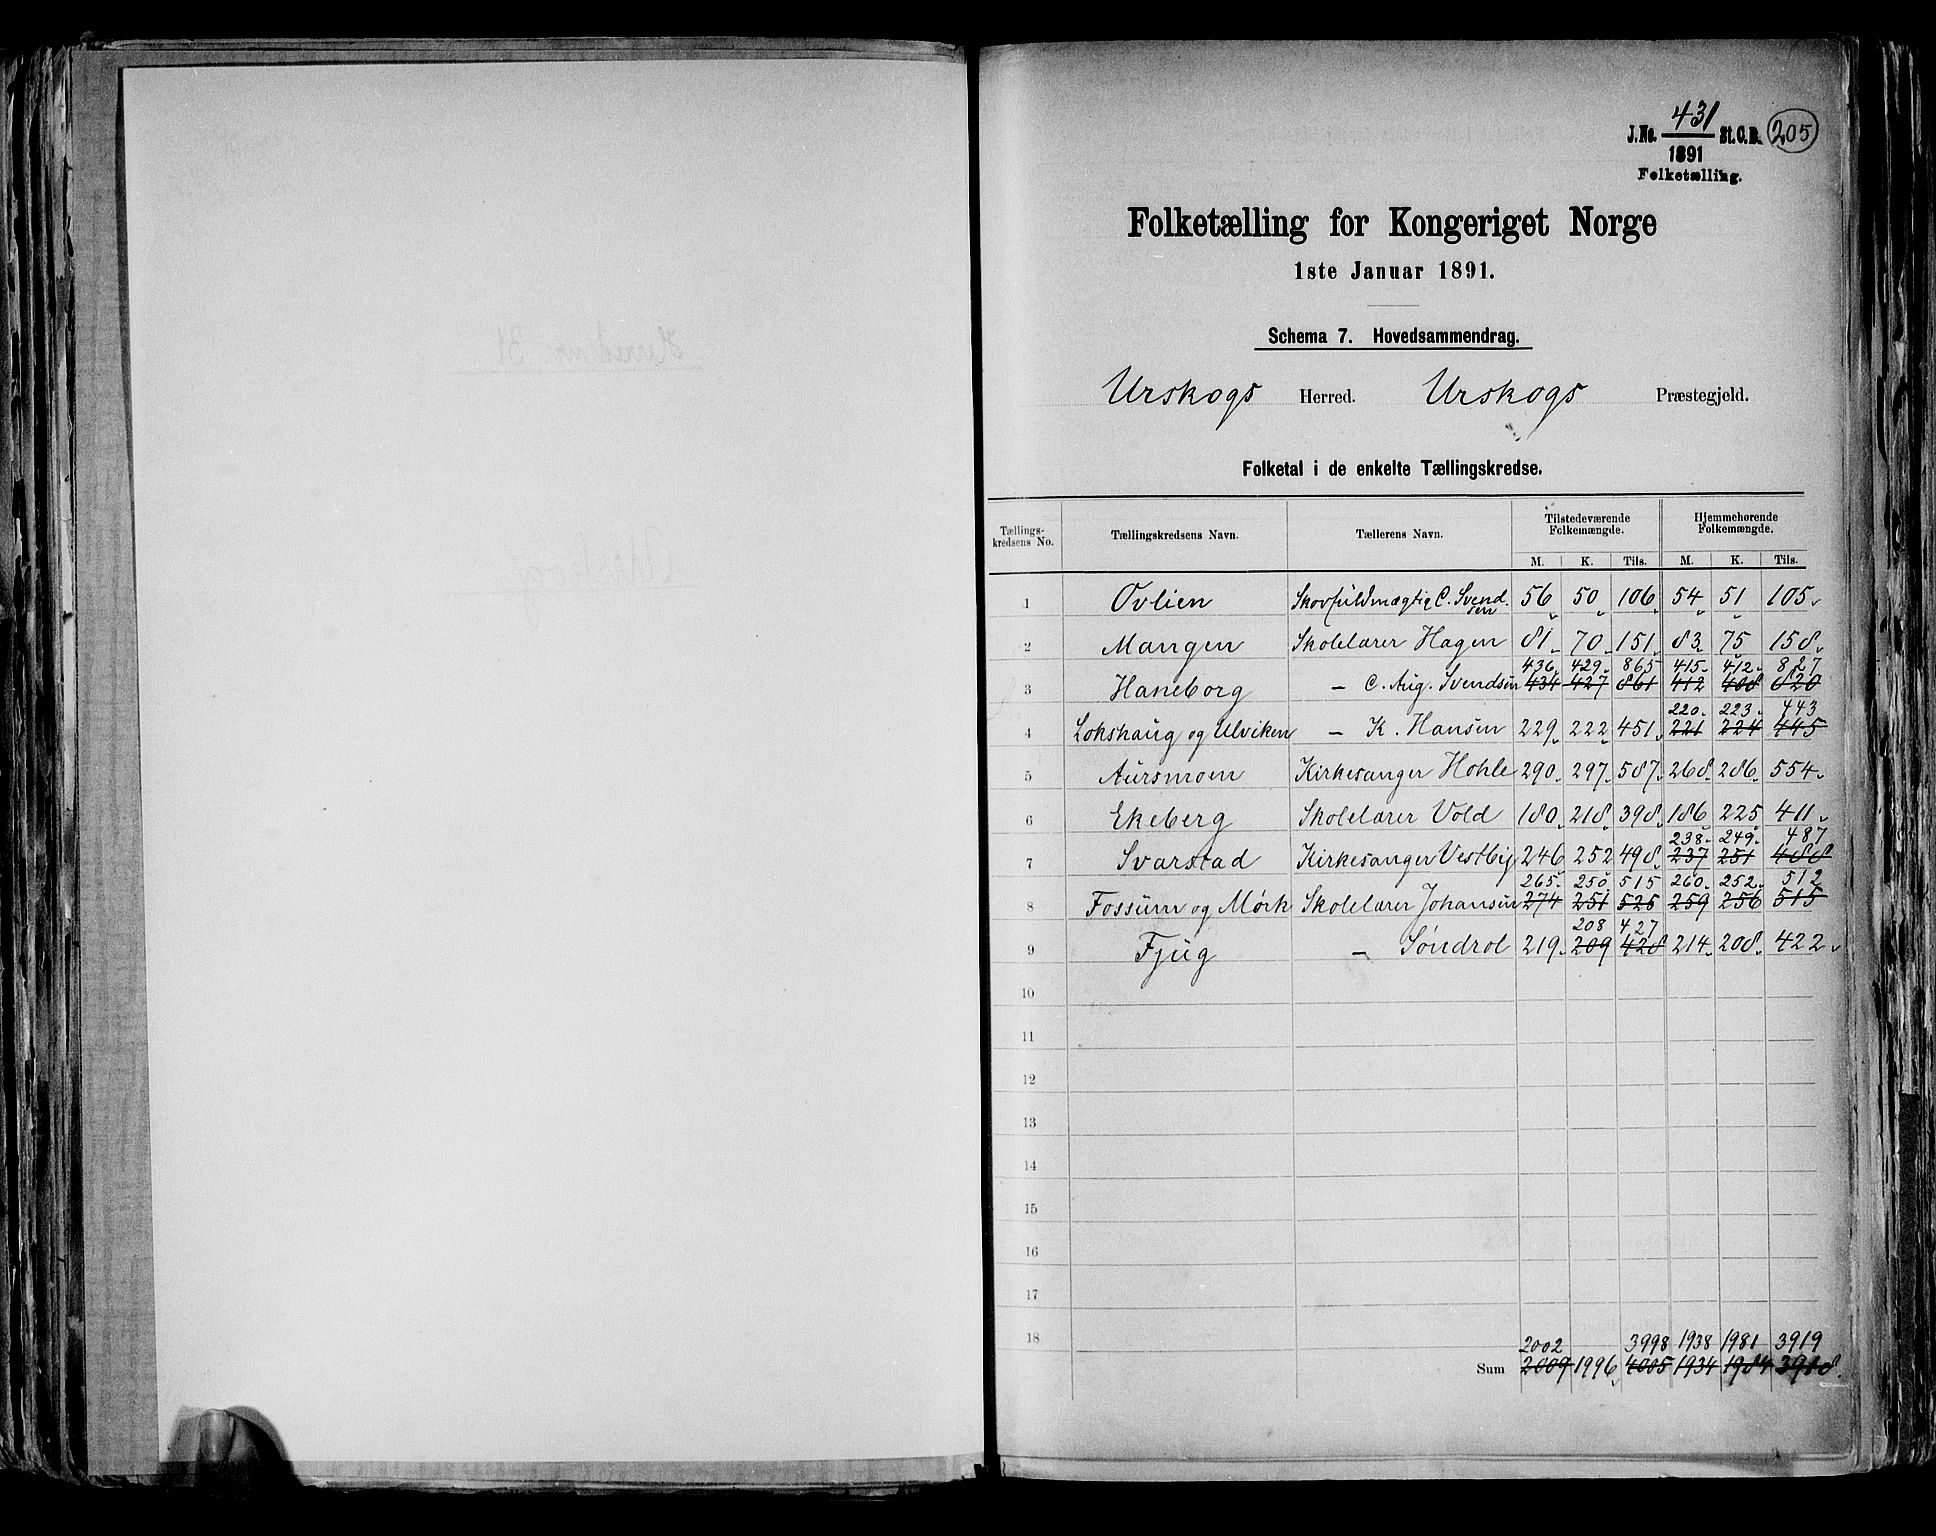 431
J.No. St.C.B. 205
1891
Folketælling.
Folketælling for Kongeriget Norge
1ste Januar 1891.
Schema 7. Hovedsammendrag.
Urskogs Herred. Urskogs Præstegjeld.
Folketal i de enkelte Tællingskredse.
Tællings-kredsens No. Tællingskredsens Navn. Tællerens Navn. Tilstedeværende Folkemængde. Hjemmehørende Folkemængde.
M. K. Tils. M. K. Tils.
1 Ovlien Skovfuldmægtig C. Svendsen 56 50 106 54 51 105
2 Mangen Skolelærer Hagen 81 70 151 83 75 158
436 429 865 415 412 827
3 Haneborg — C. Aug. Svendsen 434 427 861 412 408 820
220 223 443
4 Lokshaug og Ulviken — K. Hansen 229 222 451 221 224 445
5 Aursmoen Kirkesanger Hohle 290 297 587 268 286 554
6 Ekeberg Skolelærer Vold 180 218 398 186 225 411
238 249 487
7 Svarstad Kirkesanger Vestby 246 252 498 237 251 488
265 250 515 260 252 512
8 Fossum og Mørk Skolelærer Johansen 274 251 525 259 256 515
208 427
9 Fjug — Søndrol 219 209 428 214 208 422
10
11
12
13
14
15
16
17
18
2002 3998 1938 1981 3919
Sum 2009 1996 4005 1934 1984 3918